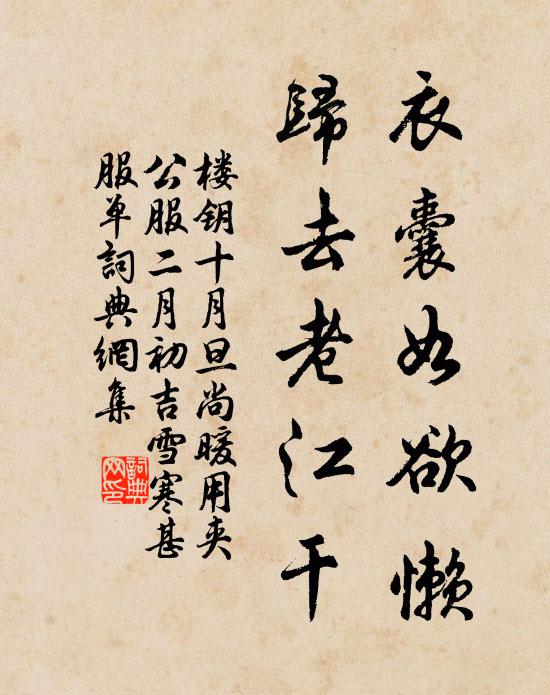 衣囊如欲懒
歸去老江干
楼钥十月旦尚暖用夹
公服二月初吉雪寒甚
服单詞典網集
詞典
网印